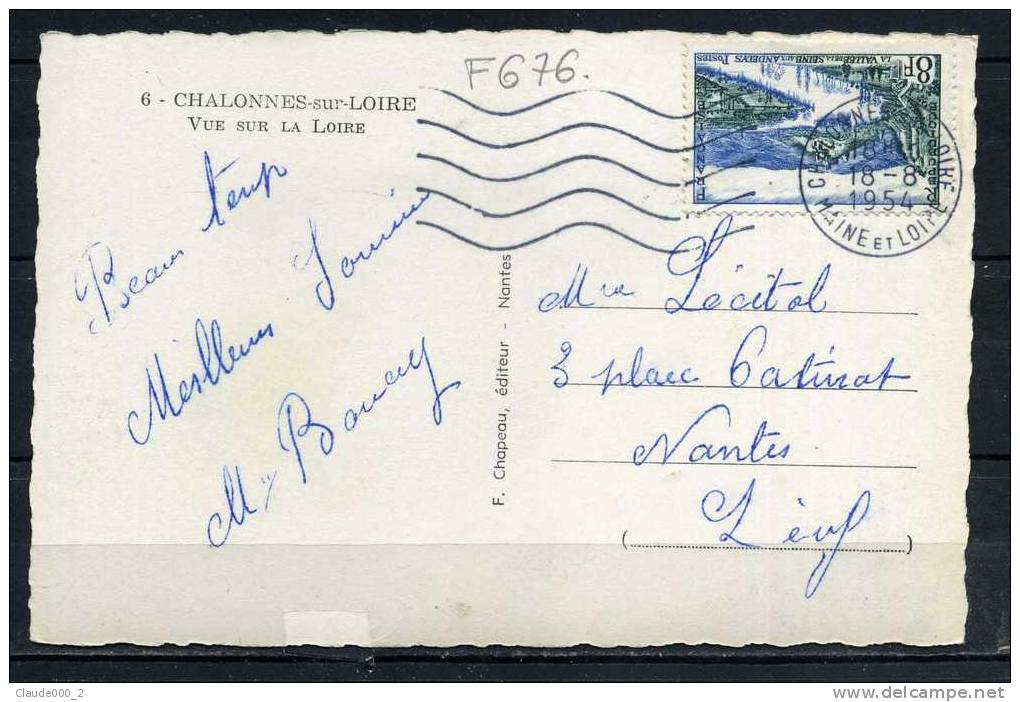 F676.
6 - CHALONNES-sur-LOIRE
VUE SUR LA LOIRE
Beau temp
Meilleurs Souvenirs
F. Chapeau, éditeur - Nantes
8F
LA VALLÉE DE LA SEINE AUX ANDELYS POSTES
CHALONNES LOIRE
18-8
1954
MAINE ET LOIRE
Lécitol
3 place Catinat
Nantes
Claude000_2
www.delcampe.net